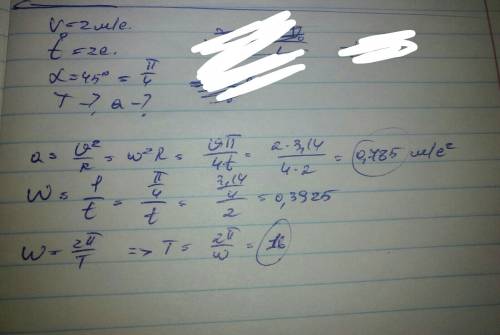 V = 2 м/с.
t = 2 с.
α = 45° = π/4
T - ? a - ?
a = υ²/R = ω²R = υπ/4t = 2·3,14/4·2 = 0,785 м/с²
W = φ/t = π/4/t = 3,14/4/2 = 0,3925
W = 2π/T => T = 2π/ω = 16